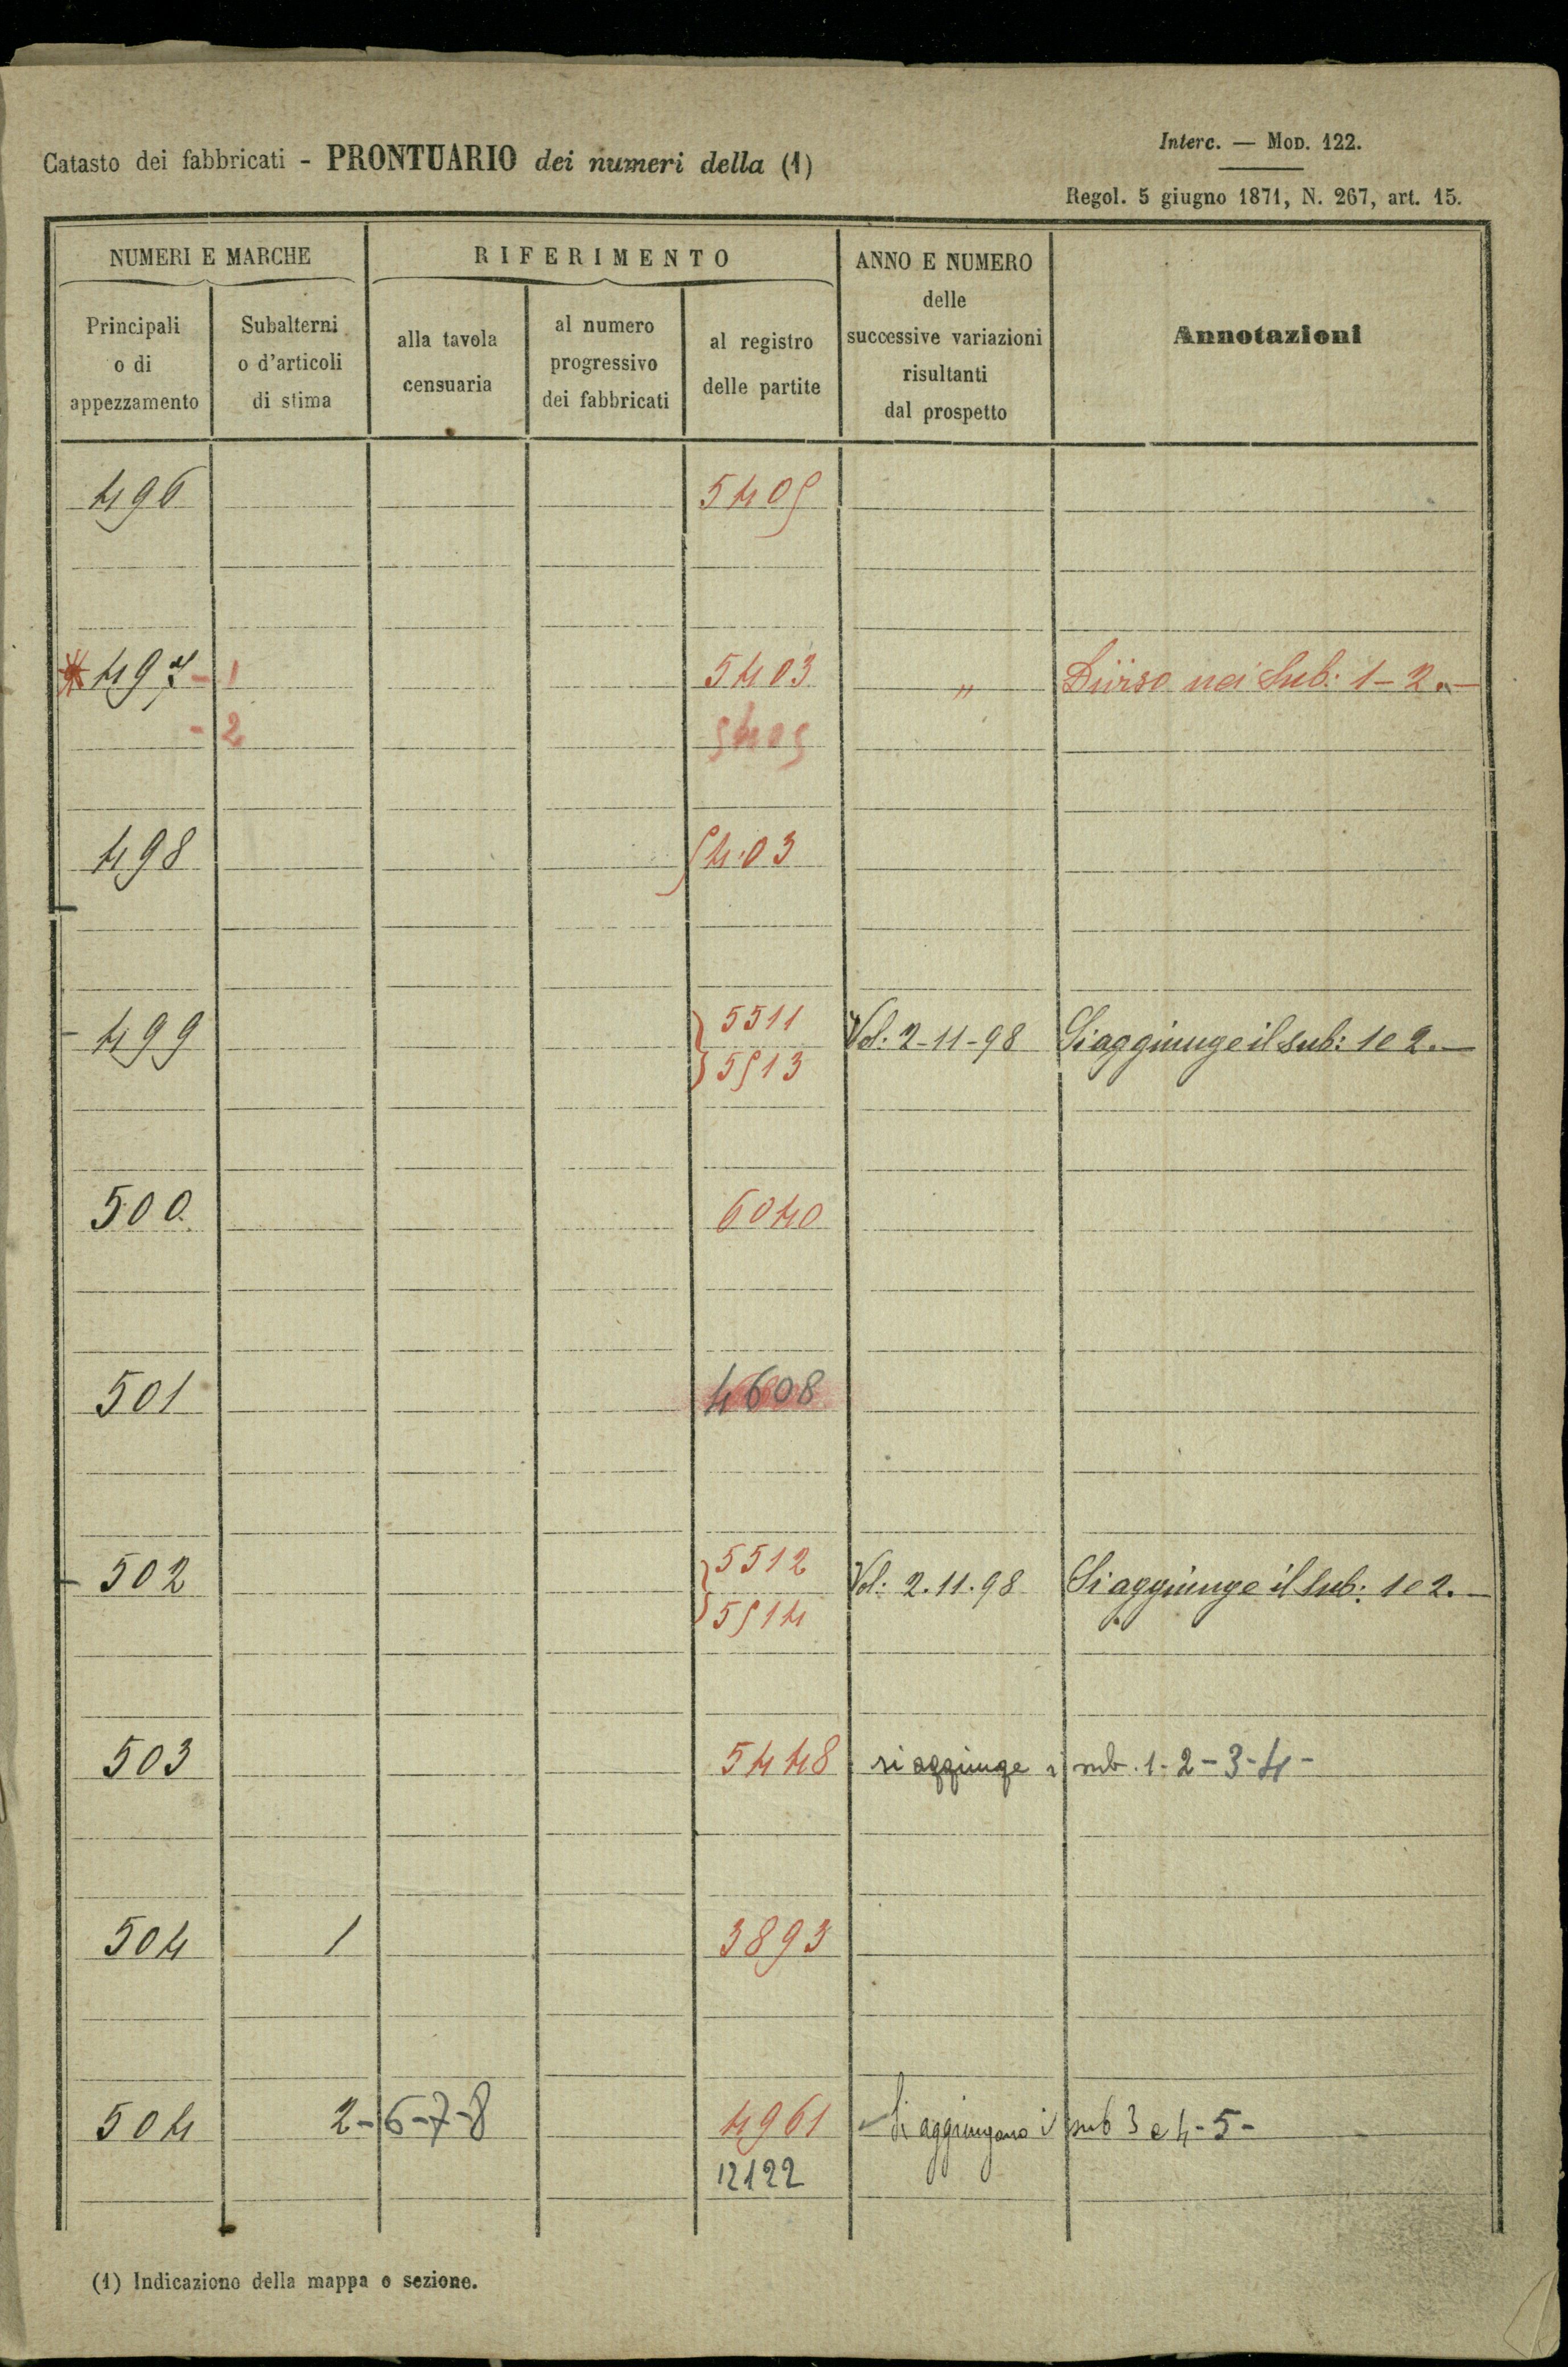 Catasto dei fabbricati - PRONTUARIO dei numeri della (1)
Interc. — Mod. 122.
Regol. 5 giugno 1871, N. 267, art. 15.
NUMERI E MARCHE
RIFERIMENTO
ANNO E NUMERO
delle
successive variazioni
risultanti
dal prospetto
Annotazioni
Principali
o di
appezzamento
Subalterni
o d'articoli
di stima
alla tavola
censuaria
al numero
progressivo
dei fabbricati
al registro
delle partite
496 5405
* 497 - 1 5403 " nei Sub: 1-2.—
- 2 5405
498 5403
- 499 5511 Vol: 2-11-98 Si aggiunge il sub: 1 e 2.—
5513
500 6040
501 4608
- 502 5512 Vol: 2.11.98 Si aggiunge il Sub: 1 e 2.—
5514
503 5448 si aggiunge i sub. 1-2-3-4-
504 1 3893
504 2-6-7-8 4961 Si aggiungano i sub 3 e 4-5-
12122
(1) Indicazione della mappa o sezione.